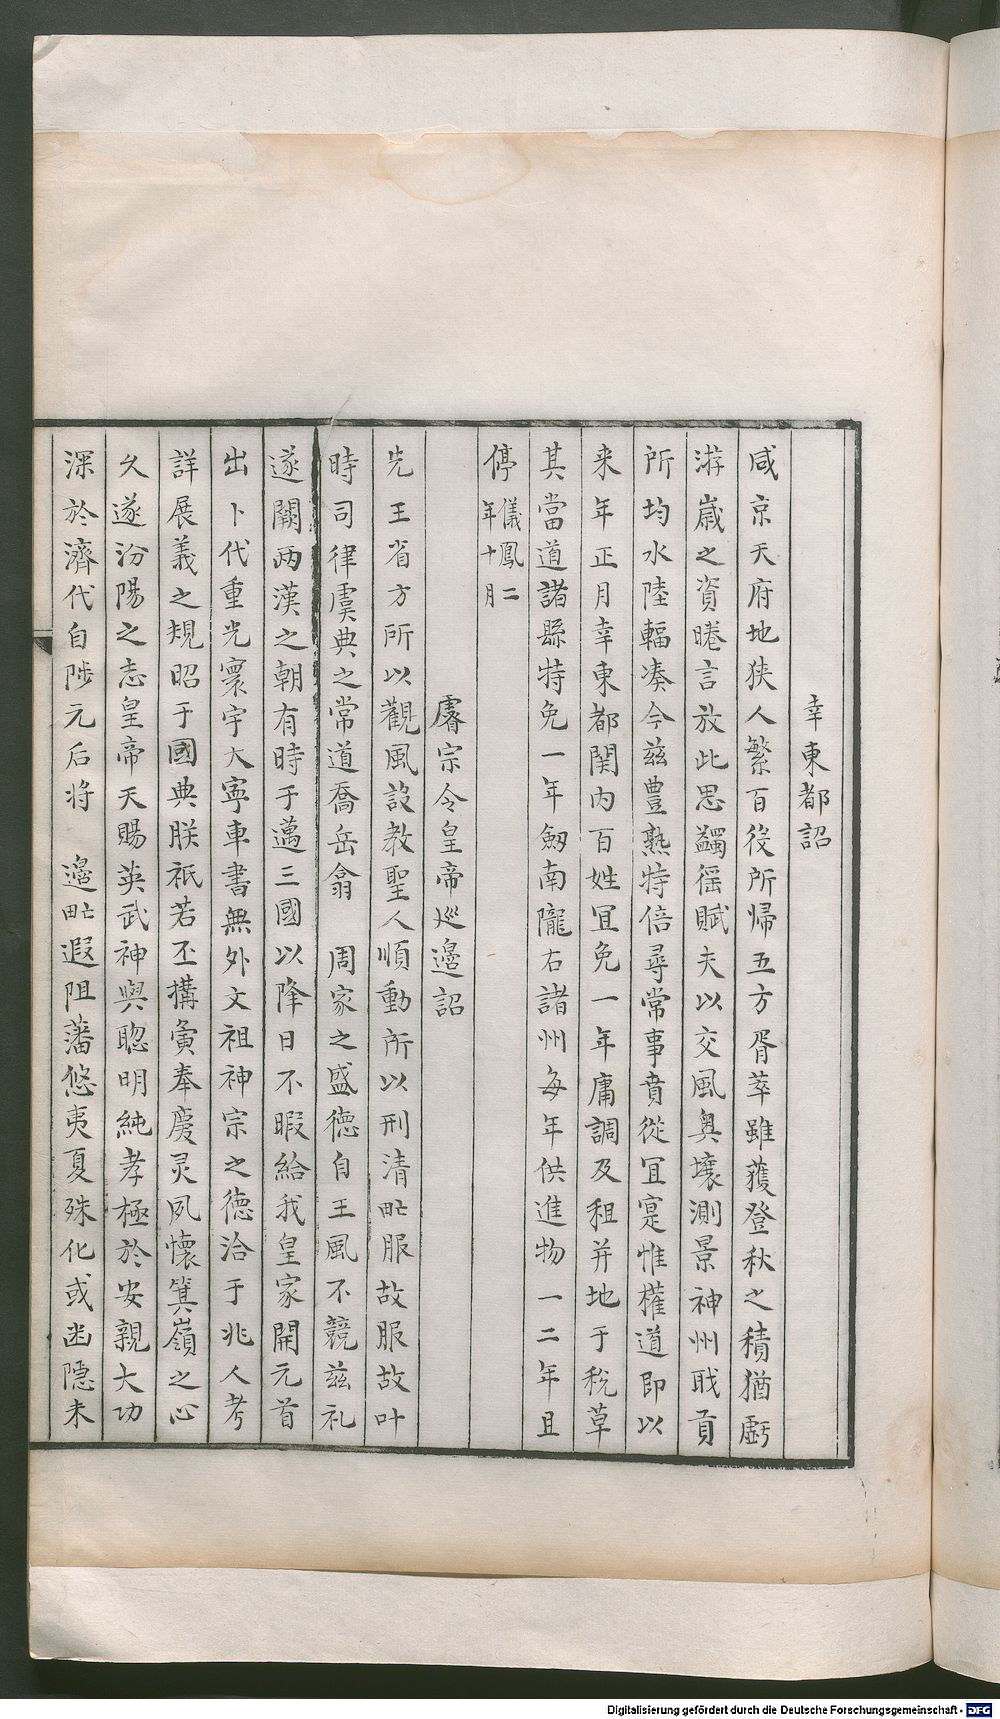 幸東都詔
咸京天府地狹人繁百役所歸五方胥萃雖獲登秋之積猶虧
游嵗之資睠言放此思蠲徭賦夫以交風奥壤測景神州職貢
所均水陸輻湊今兹豊熟特倍尋常事賁從宜寔惟權道即以
来年正月幸東都関内百姓冝免一年庸調及租并地于稅草
其當道諸縣特免一年劔南隴右諸州每年供進物一二年且
停儀鳳二年十月
睿宗令皇帝巡邊詔
先王省方所以觀風設教聖人順動所以刑清甿服故服故叶
時司律虞典之常道喬岳翕 周家之盛德自王風不競兹礼
遂闕两漢之朝有時于邁三國以降日不暇給我皇家開元首
出卜代重光寰宇大寧車書無外文祖神宗之德洽于兆人考
詳展義之規昭于國典朕祇若丕搆夤奉慶灵夙懷箕嶺之心
久遂汾陽之志皇帝天賜英武神與聦明純孝極於安親大功
深於濟代自陟元后将 邊甿遐阻藩悠夷夏殊化或幽隠未
Digitalisierung gefördert durch die Deutsche Forschungsgemeinschaft - DFG